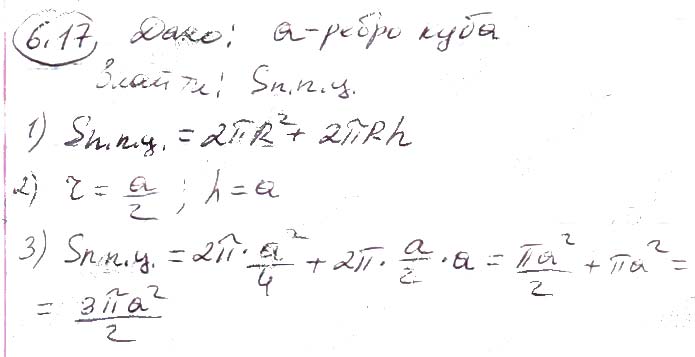 6.17. Дано: a-ребро куба
Знайти: Sп.п.ц.
1) Sп.п.ц. = 2πR² + 2πRh
2) r = a/2 ; h = a
3) Sп.п.ц. = 2π · a²/4 + 2π · a/2 · a = πa²/2 + πa² =
= 3πa²/2